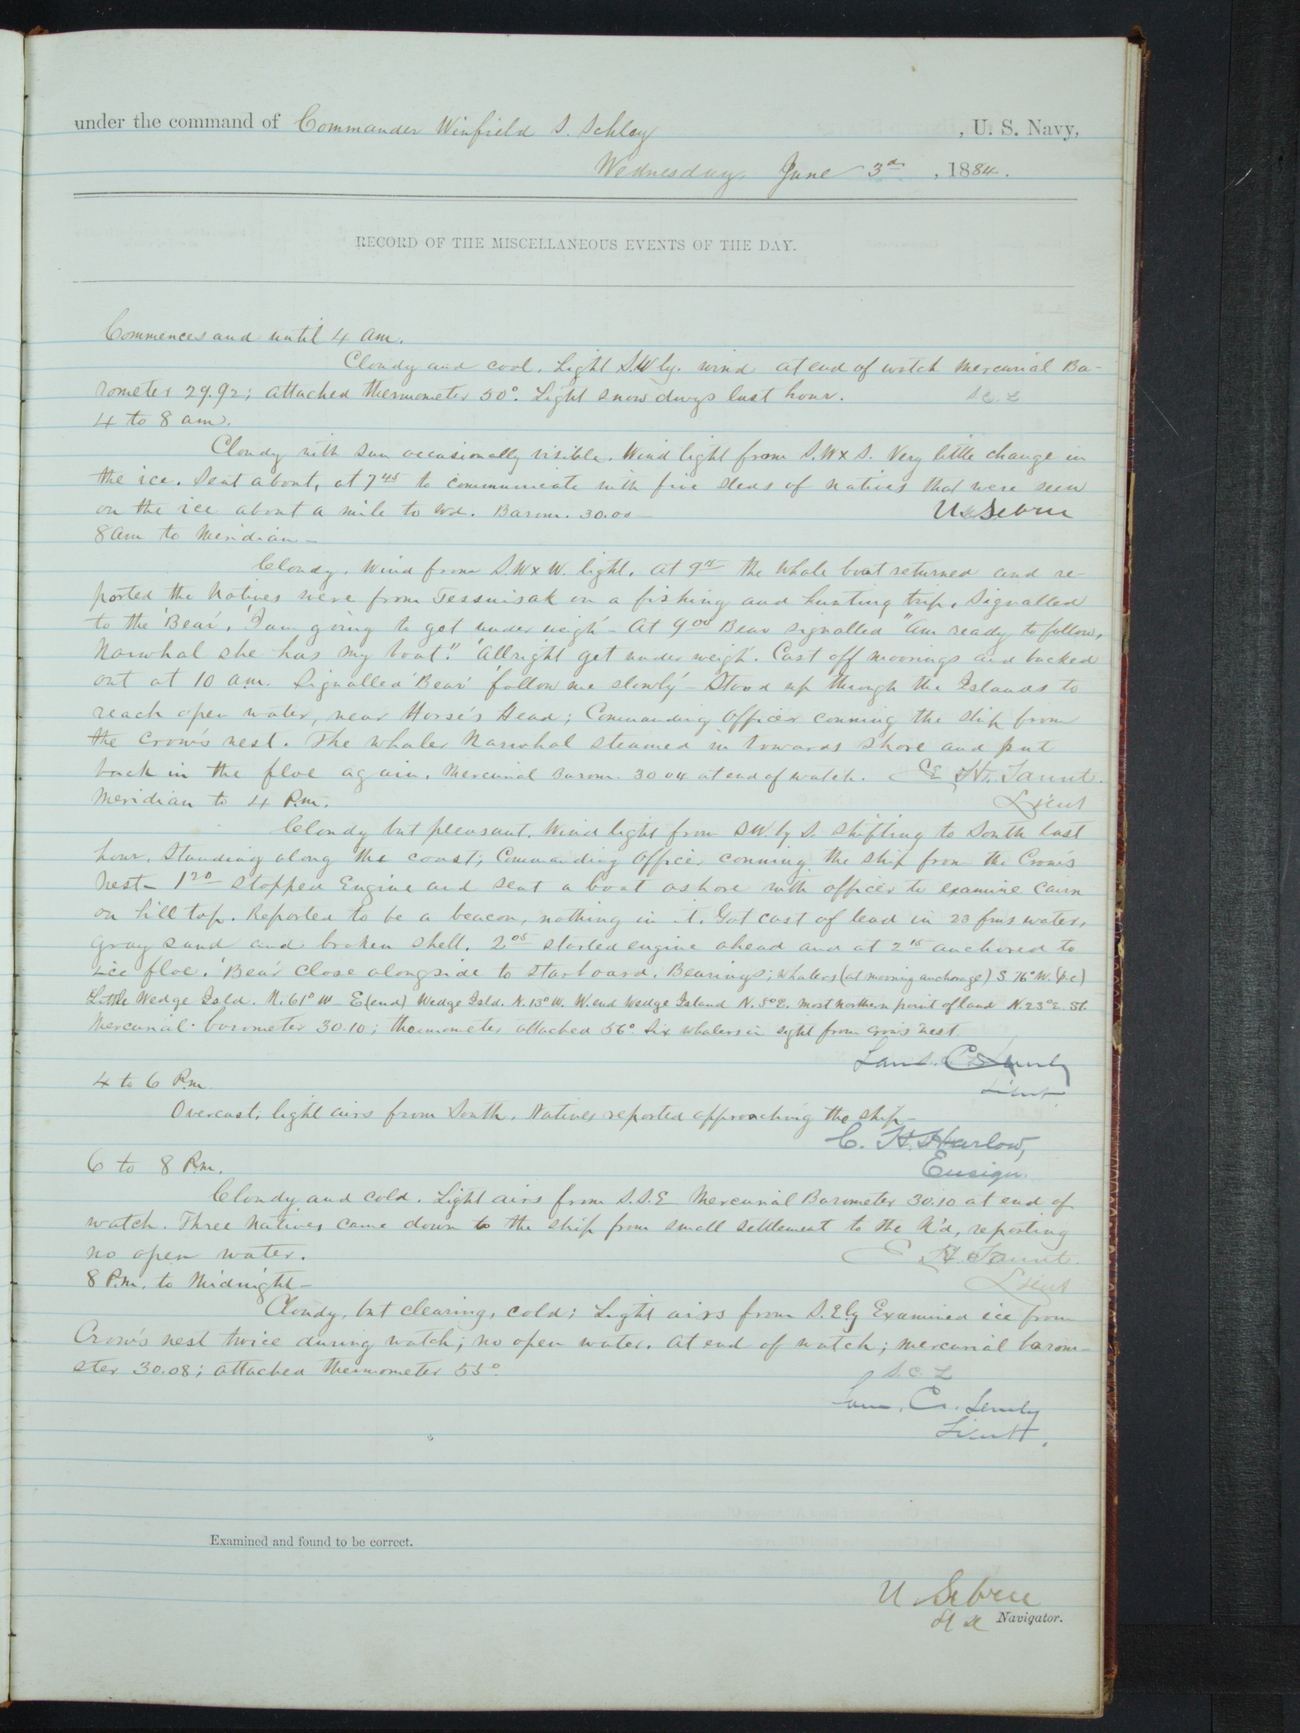 under the command of Commander Winfield S. Schley, U. S. Navy,
Wednesday, June 3rd, 1884.
RECORD OF THE MISCELLANEOUS EVENTS OF THE DAY.
Commences and until 4 am.
Cloudy and cool. Light S.W'ly. wind at end of watch Mercurial Ba-
rometer 29.92; attached thermometer 50°. Light snow during last hour. S.C.L
4 to 8 am.
Cloudy with sun occasionally visible. Wind light from S.W x S. Very little change in
the ice. Sent a boat, at 7 45 to communicate with five sleds of natives that were seen
on the ice about a mile to Wd. Barom. 30.00 –
U. Sebree
8 am to Meridian –
Cloudy. Wind from S.W x W. light. At 9 the Whale boat returned and re-
ported the Natives were from Tessuisak on a fishing and hunting trip. Signalled
to the 'Bear', 'I am going to get under weigh' – At 9 00 Bear signalled "Am ready to follow,
Narwhal she has my boat." 'All right get under weigh'. Cast off moorings and backed
out at 10 a.m. Signalled 'Bear' 'follow me slowly' – Stood up through the Islands to
reach open water, near Horse's Head; Commanding Officer conning the ship from
the Crow's nest. The whaler Narwhal steamed in towards shore and put
back in the floe again. Mercurial Barom. 30 04 at end of watch. E. H. Taunt.
Lieut
Meridian to 4 P.m.
Cloudy but pleasant. Wind light from SW. by S. shifting to South last
hour. Standing along the coast; Commanding Officer conning the ship from the Crow's
Nest – 1 20 stopped Engine and sent a boat ashore with officer to examine cairn
on hill top. Reported to be a beacon, nothing in it. Got cast of lead in 23 fms water,
gray sand and broken shell. 2 05 started engine ahead and at 2 15 anchored to
ice floe. 'Bear' close alongside to starboard. Bearings; whalers (at morning anchorage) S 76° W. (p.c)
Little Wedge Isld. N. 61° W – E (end) Wedge Isld. N. 13° W. W end Wedge Island N. 5° E. most northern point of land N. 23° E. St.
Mercurial barometer 30.10; thermometer attached 56° Six whalers in sight from crow's nest
Sam. C. Lemly
Lieut.
4 to 6 P.m.
Overcast, light airs from South. Natives reported approaching the ship –
C. H. Harlow,
Ensign.
6 to 8 P.m.
Cloudy and cold. Light airs from S.S.E Mercurial Barometer 30.10 at end of
watch. Three Natives came down to the ship from small settlement to the N'd, reporting
no open water. E. H. Taunt.
Lieut
8 P.m. to Midnight –
Cloudy, but clearing, cold; Light airs from S.E'ly Examined ice from
Crow's nest twice during watch; no open water. At end of watch; mercurial barom-
eter 30.08; attached thermometer 53°
S.C.L
Sam. C. Lemly
Lieut.
Examined and found to be correct.
U. Sebree
Navigator.